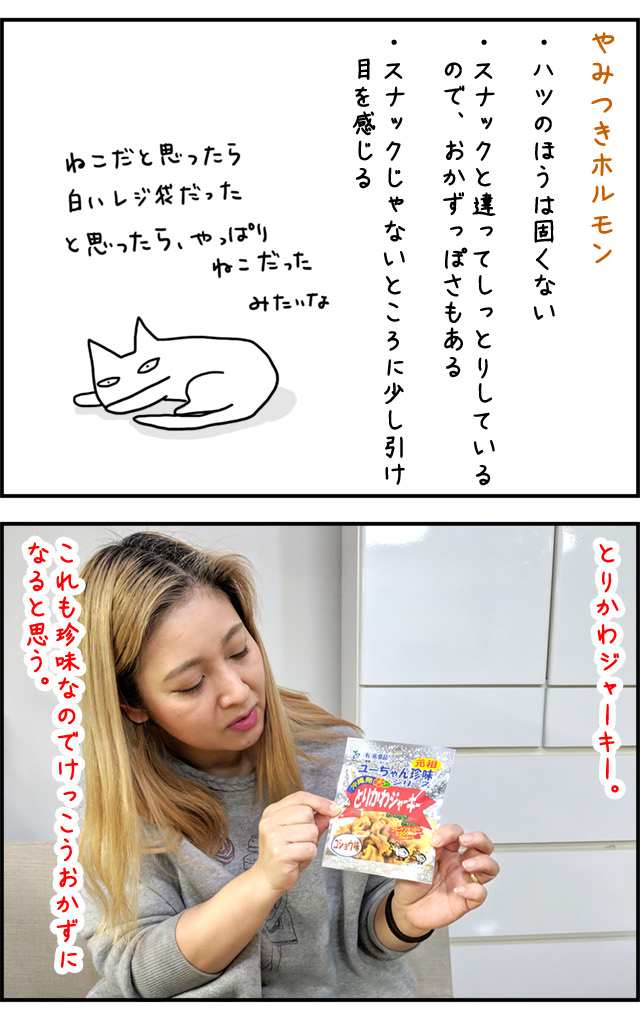 やみつきホルモン
・ハツのほうは固くない
・スナックと違ってしっとりしている
ので、おかずっぽさもある
・スナックじゃないところに少し引け
目を感じる
ねこだと思ったら
白いレジ袋だった
と思ったら、やっぱり
ねこだった
みたいな
とりかわジャーキー。
これも珍味なのでけっこうおかずに
なると思う。
元祖
ユーちゃん珍味
シリーズ
とりかわジャーキー
コショウ味